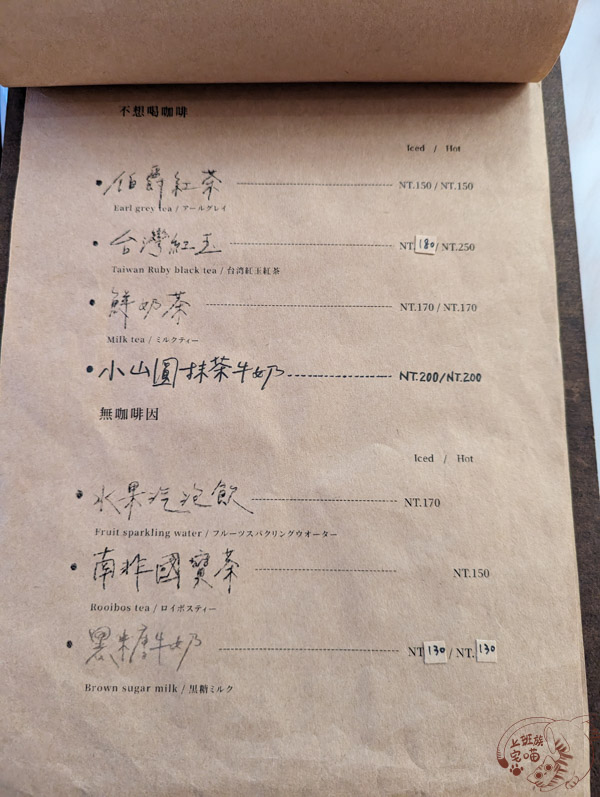 不想喝咖啡
Iced / Hot
伯爵紅茶 NT.150 / NT.150
Earl grey tea / アールグレイ
台灣紅玉 NT.180 / NT.250
Taiwan Ruby black tea / 台湾紅玉紅茶
鮮奶茶 NT.170 / NT.170
Milk tea / ミルクティー
小山圓抹茶牛奶 NT.200/NT.200
無咖啡因
Iced / Hot
水果汽泡飲 NT.170
Fruit sparkling water / フルーツスパクリングウオーター
南非國寶茶 NT.150
Rooibos tea / ロイボスティー
黑糖牛奶 NT 130 / NT. 130
Brown sugar milk / 黒糖ミルク
上班族
宅喵